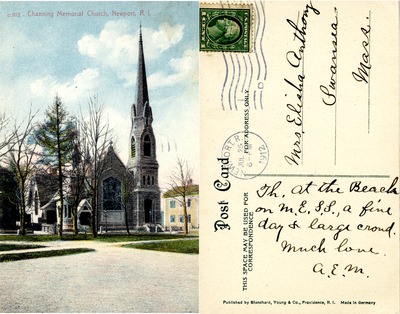 Channing Memorial Church, Newport, R. I.
Mrs. Elisha Anthony
Swansea
Mass.
THIS SPACE MAY BE USED FOR
CORRESPONDENCE
Post Card
FOR ADDRESS ONLY
1912
Th. at the Beach
on M.E, S.S., a fine
day & large crowd.
Much love.
A.E.M.
Published by Blanchard, Young & Co., Providence, R. I. Made in Germany